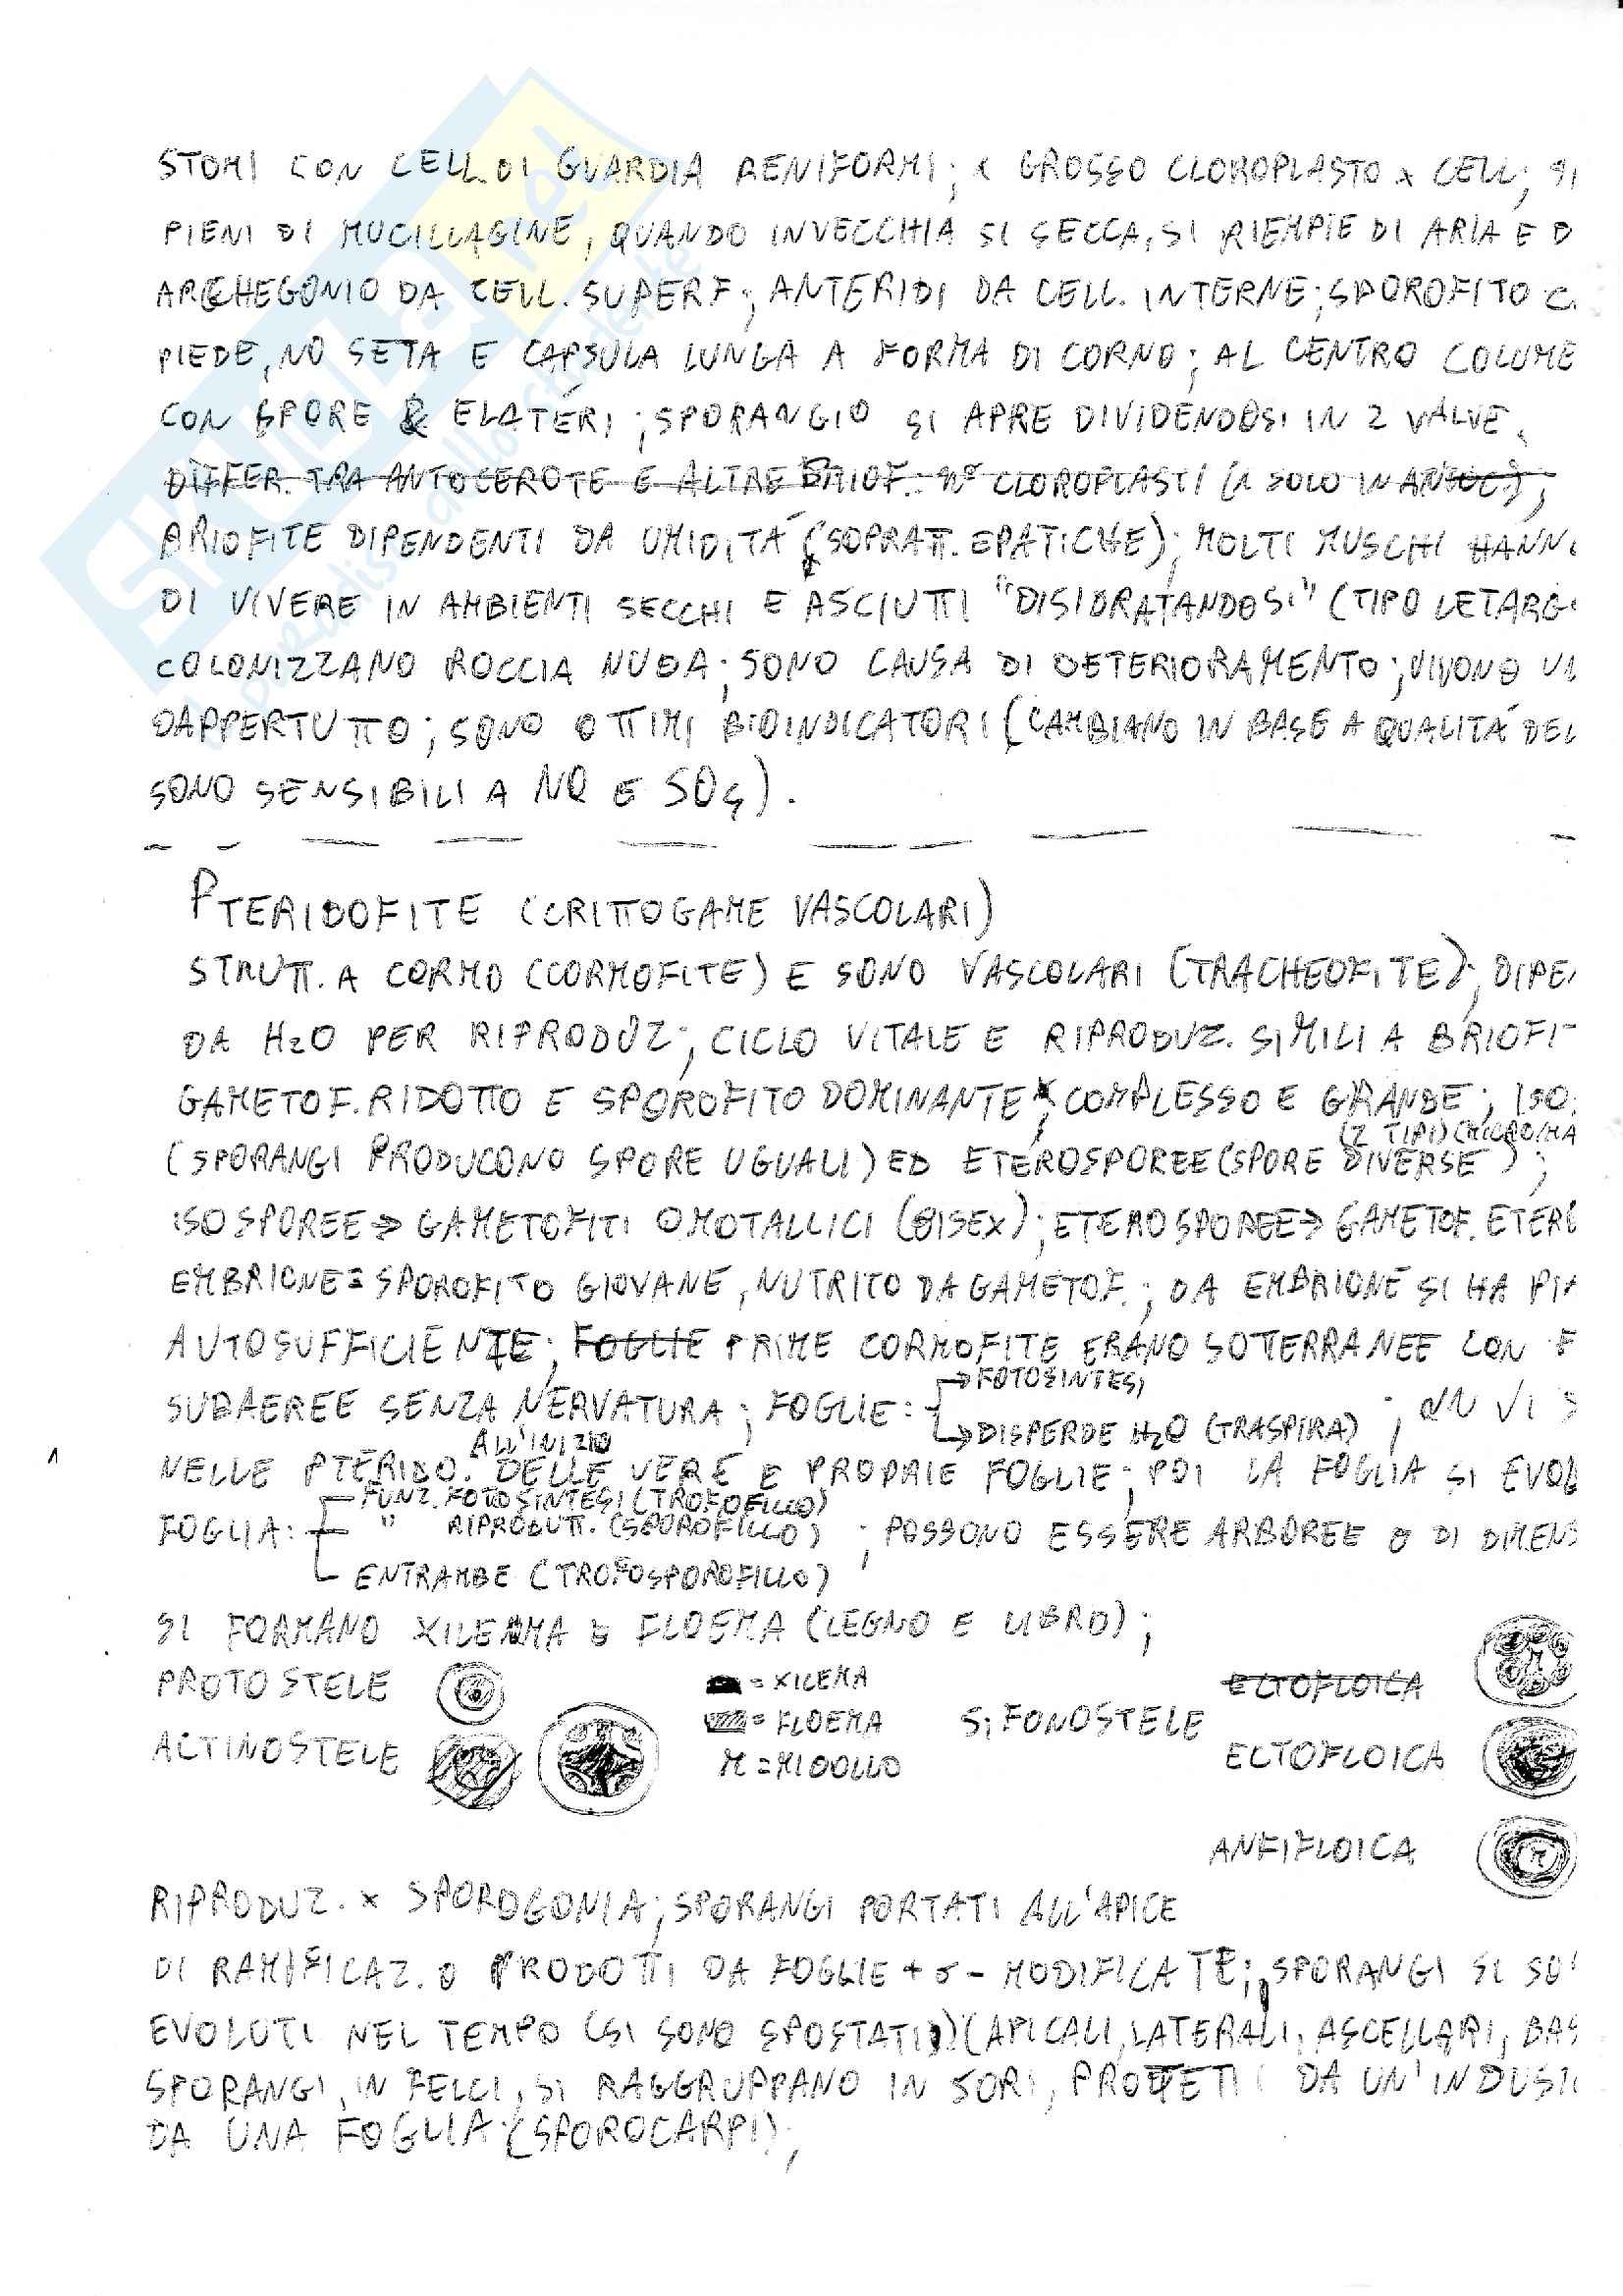 STOMI CON CELL. DI GUARDIA RENIFORMI; 1 GROSSO CLOROPLASTO x CELL;
PIENI DI MUCILLAGINE, QUANDO INVECCHIA SI SECCA, SI RIEMPIE DI ARIA E D
ARCHEGONIO DA CELL. SUPERF; ANTERIDI DA CELL. INTERNE; SPOROFITO C
PIEDE, NO SETA E CAPSULA LUNGA A FORMA DI CORNO; AL CENTRO COLUME
CON SPORE & ELATERI; SPORANGIO SI APRE DIVIDENDOSI IN 2 VALVE.
DIFFER. TRA ANTOCEROTE E ALTRE BRIOF.: n° CLOROPLASTI (1 SOLO IN ANTOC.);
BRIOFITE DIPENDENTI DA UMIDITÀ (SOPRATT. EPATICHE); MOLTI MUSCHI HANN
DI VIVERE IN AMBIENTI SECCHI E ASCIUTTI "DISIDRATANDOSI" (TIPO LETARG
COLONIZZANO ROCCIA NUDA; SONO CAUSA DI DETERIORAMENTO; VIVONO
DAPPERTUTTO; SONO OTTIMI BIOINDICATORI (CAMBIANO IN BASE A QUALITÀ DEL
SONO SENSIBILI A E ).
PTERIDOFITE (CRITTOGAME VASCOLARI)
STRUTT. A CORMO (CORMOFITE) E SONO VASCOLARI (TRACHEOFITE); DIPE
DA H2O PER RIPRODUZ; CICLO VITALE E RIPRODUZ. SIMILI A BRIOFI
GAMETOF. RIDOTTO E SPOROFITO DOMINANTE, COMPLESSO E GRANDE; ISO
(2 TIPI) (MICRO/MA
(SPORANGI PRODUCONO SPORE UGUALI) ED ETEROSPOREE (SPORE DIVERSE);
ISOSPOREE → GAMETOFITI OMOTALLICI (BISEX); ETEROSPOREE → GAMETOF. ETER
EMBRIONE = SPOROFITO GIOVANE, NUTRITO DA GAMETOF.; DA EMBRIONE SI HA PIA
AUTOSUFFICIENTE; FOGLIE PRIME CORMOFITE ERANO SOTTERRANEE CON F
→ FOTOSINTESI
SUBAEREE SENZA NERVATURA; FOGLIE: ; NN VI S
→ DISPERDE H2O (TRASPIRA)
ALL'INIZIO
NELLE PTERIDO. DELLE VERE E PROPRIE FOGLIE; POI LA FOGLIA SI EVOL
FUNZ. FOTOSINTESI (TROFOFILLO)
FOGLIA: " RIPRODUTT. (SPOROFILLO) ; POSSONO ESSERE ARBOREE O DI DIMENS
ENTRAMBE (TROFOSPOROFILLO)
SI FORMANO XILEMA E FLOEMA (LEGNO E LIBRO);
PROTOSTELE = XILEMA ECTOFLOICA
ACTINOSTELE = FLOEMA SIFONOSTELE
M = MIDOLLO ECTOFLOICA
ANFIFLOICA
RIPRODUZ. x SPOROGONIA; SPORANGI PORTATI ALL'APICE
DI RAMIFICAZ. O PRODOTTI DA FOGLIE + o - MODIFICATE; SPORANGI SI SO
EVOLUTI NEL TEMPO (SI SONO SPOSTATI) (APICALI, LATERALI, ASCELLARI, BAS
SPORANGI, IN FELCI, SI RAGGRUPPANO IN SORI, PROTETTI DA UN'INDUSI
DA UNA FOGLIA (SPOROCARPI);